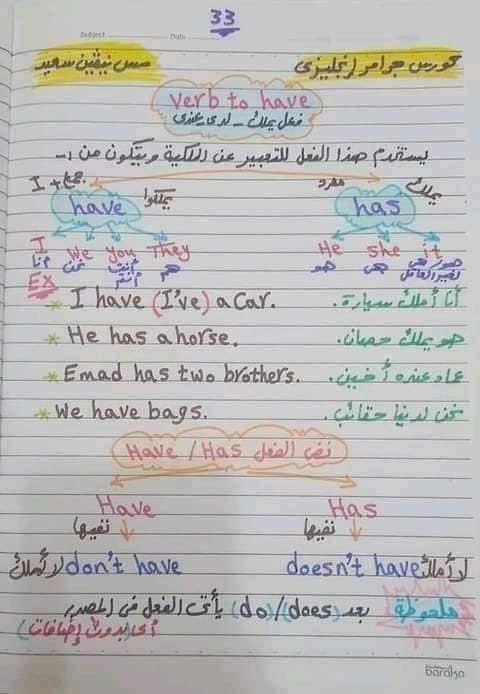 33
Subject Date
كورس جرامر إنجليزى مس نيڤين سعيد
verb to have
فعل يملك - لدى يعندى
يستخدم هذا الفعل للتعبير عن الملكية ويتكون من :-
I + جمع يملكوا مفرد يملك
have has
I we you They He she it
أنا نحن أنت أنتم هم هو هى هو/هى لغير العاقل
EX
* I have (I've) a car. أنا أملك سيارة.
* He has a horse. هو يملك حصان.
* Emad has two brothers. عماد عنده أخين.
* We have bags. نحن لدينا حقائب.
نفى الفعل Have / Has
Have Has
نفيها نفيها
لا أملك don't have doesn't have لا أملك
ملحوظة بعد (do)/(does) يأتى الفعل فى المصدر
أى (بدون إضافات)
baraka